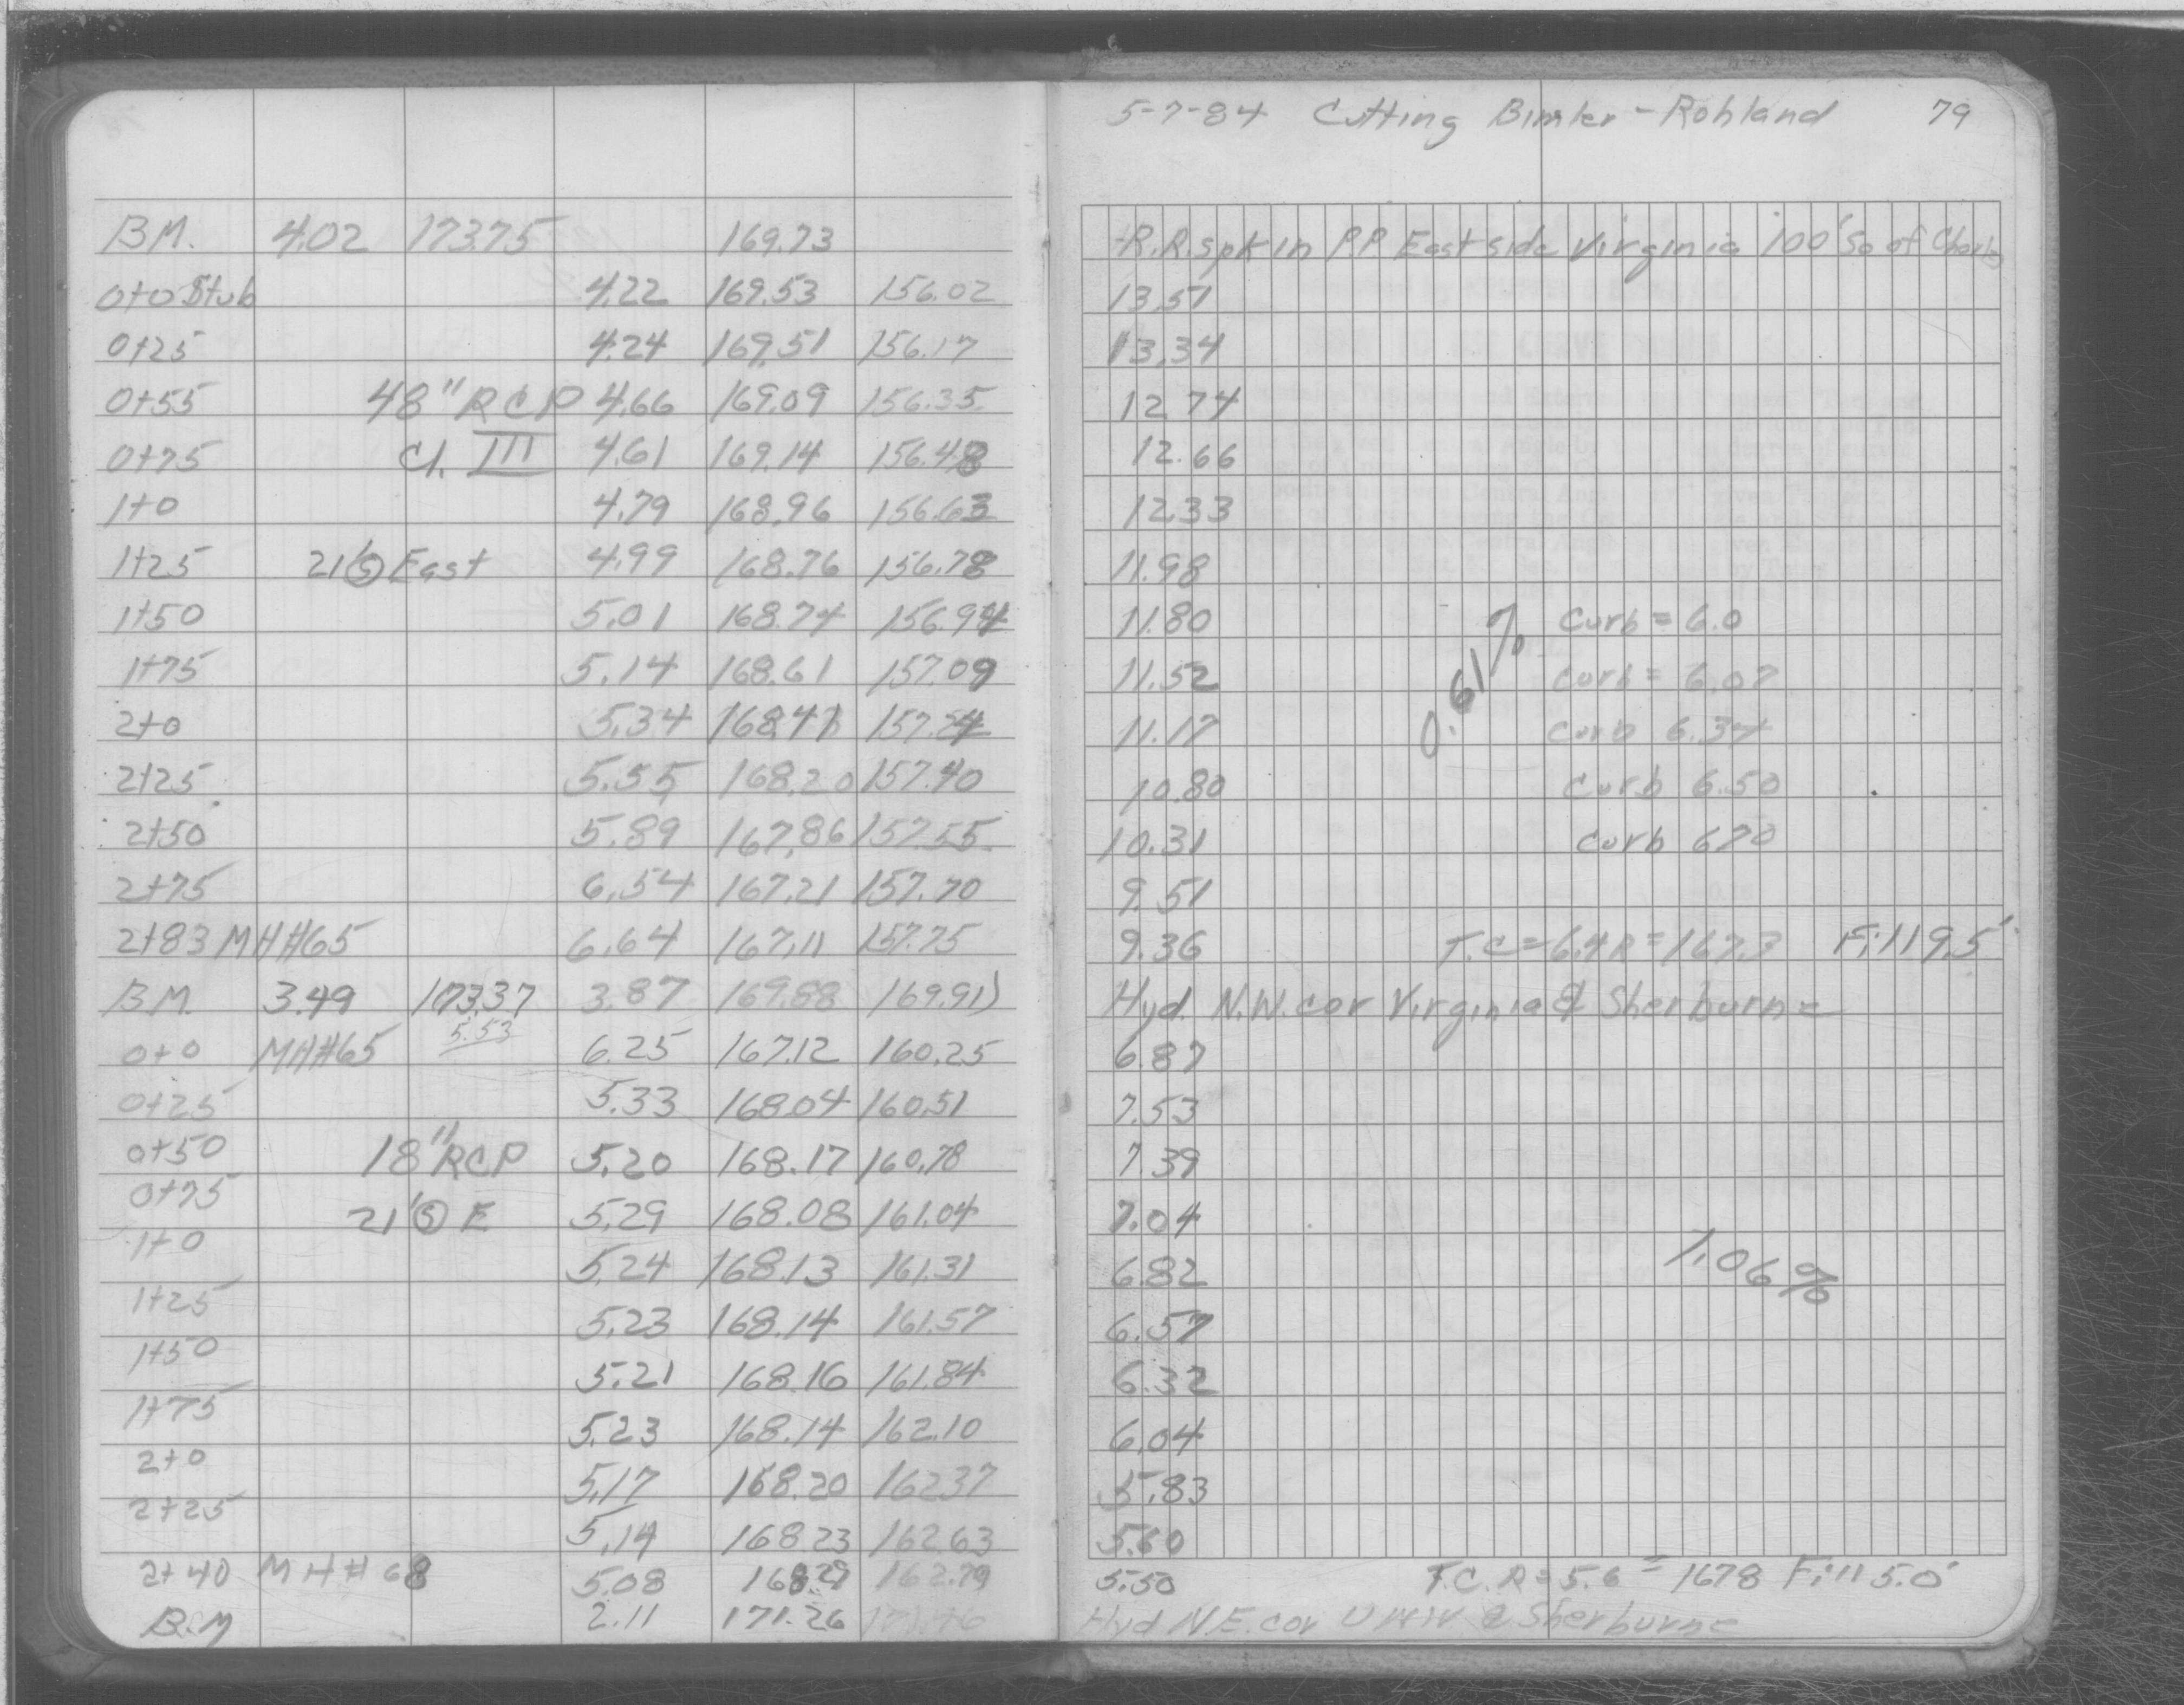 5-7-84 Cutting Bimler - Rohland 79
B.M. 4.02 173.75 169.73 R.R. spk in P.P East side Virginia 100' So of
0+0 Stub 4.22 169.53 156.02 13.51
0+25 4.24 169.51 156.17 13.34
0+55 48" RCP 4.66 169.09 156.35 12.74
0+75 Cl. III 4.61 169.14 156.48 12.66
1+0 4.79 168.96 156.63 12.33
1+25 21' Ⓢ East 4.99 168.76 156.78 11.98
1+50 5.01 168.74 156.94 11.80 curb = 6.0
1+75 5.14 168.61 157.09 11.52 0.61% curb = 6.07
2+0 5.34 168.41 157.24 11.17 curb 6.34
2+25 5.55 168.20 157.40 10.80 curb 6.50
2+50 5.89 167.86 157.55 10.31 curb 670
2+75 6.54 167.21 157.70 9.51
2+83 MH#65 6.64 167.11 157.75 9.36 T.C = 6.4 R = 167.3 Fill 9.5'
B.M. 3.49 173.37 3.87 169.88 169.91) Hyd. N.W. cor Virginia & Sherburne
5.53
0+0 MH#65 6.25 167.12 160.25 6.87
0+25 5.33 168.04 160.51 7.53
0+50 18" RCP 5.20 168.17 160.78 7.39
0+75 21' Ⓢ E 5.29 168.08 161.04 7.04
1+0 5.24 168.13 161.31 6.82 1.06%
1+25 5.23 168.14 161.57 6.57
1+50 5.21 168.16 161.84 6.32
1+75 5.23 168.14 162.10 6.04
2+0 5.17 168.20 162.37 5.83
2+25 5.14 168.23 162.63 5.60
2+40 MH#68 5.08 168.29 162.79 5.50 T.C. R = 5.6 = 1678 Fill 5.0'
B.M 2.11 171.26 Hyd N.E. cor & Sherburne